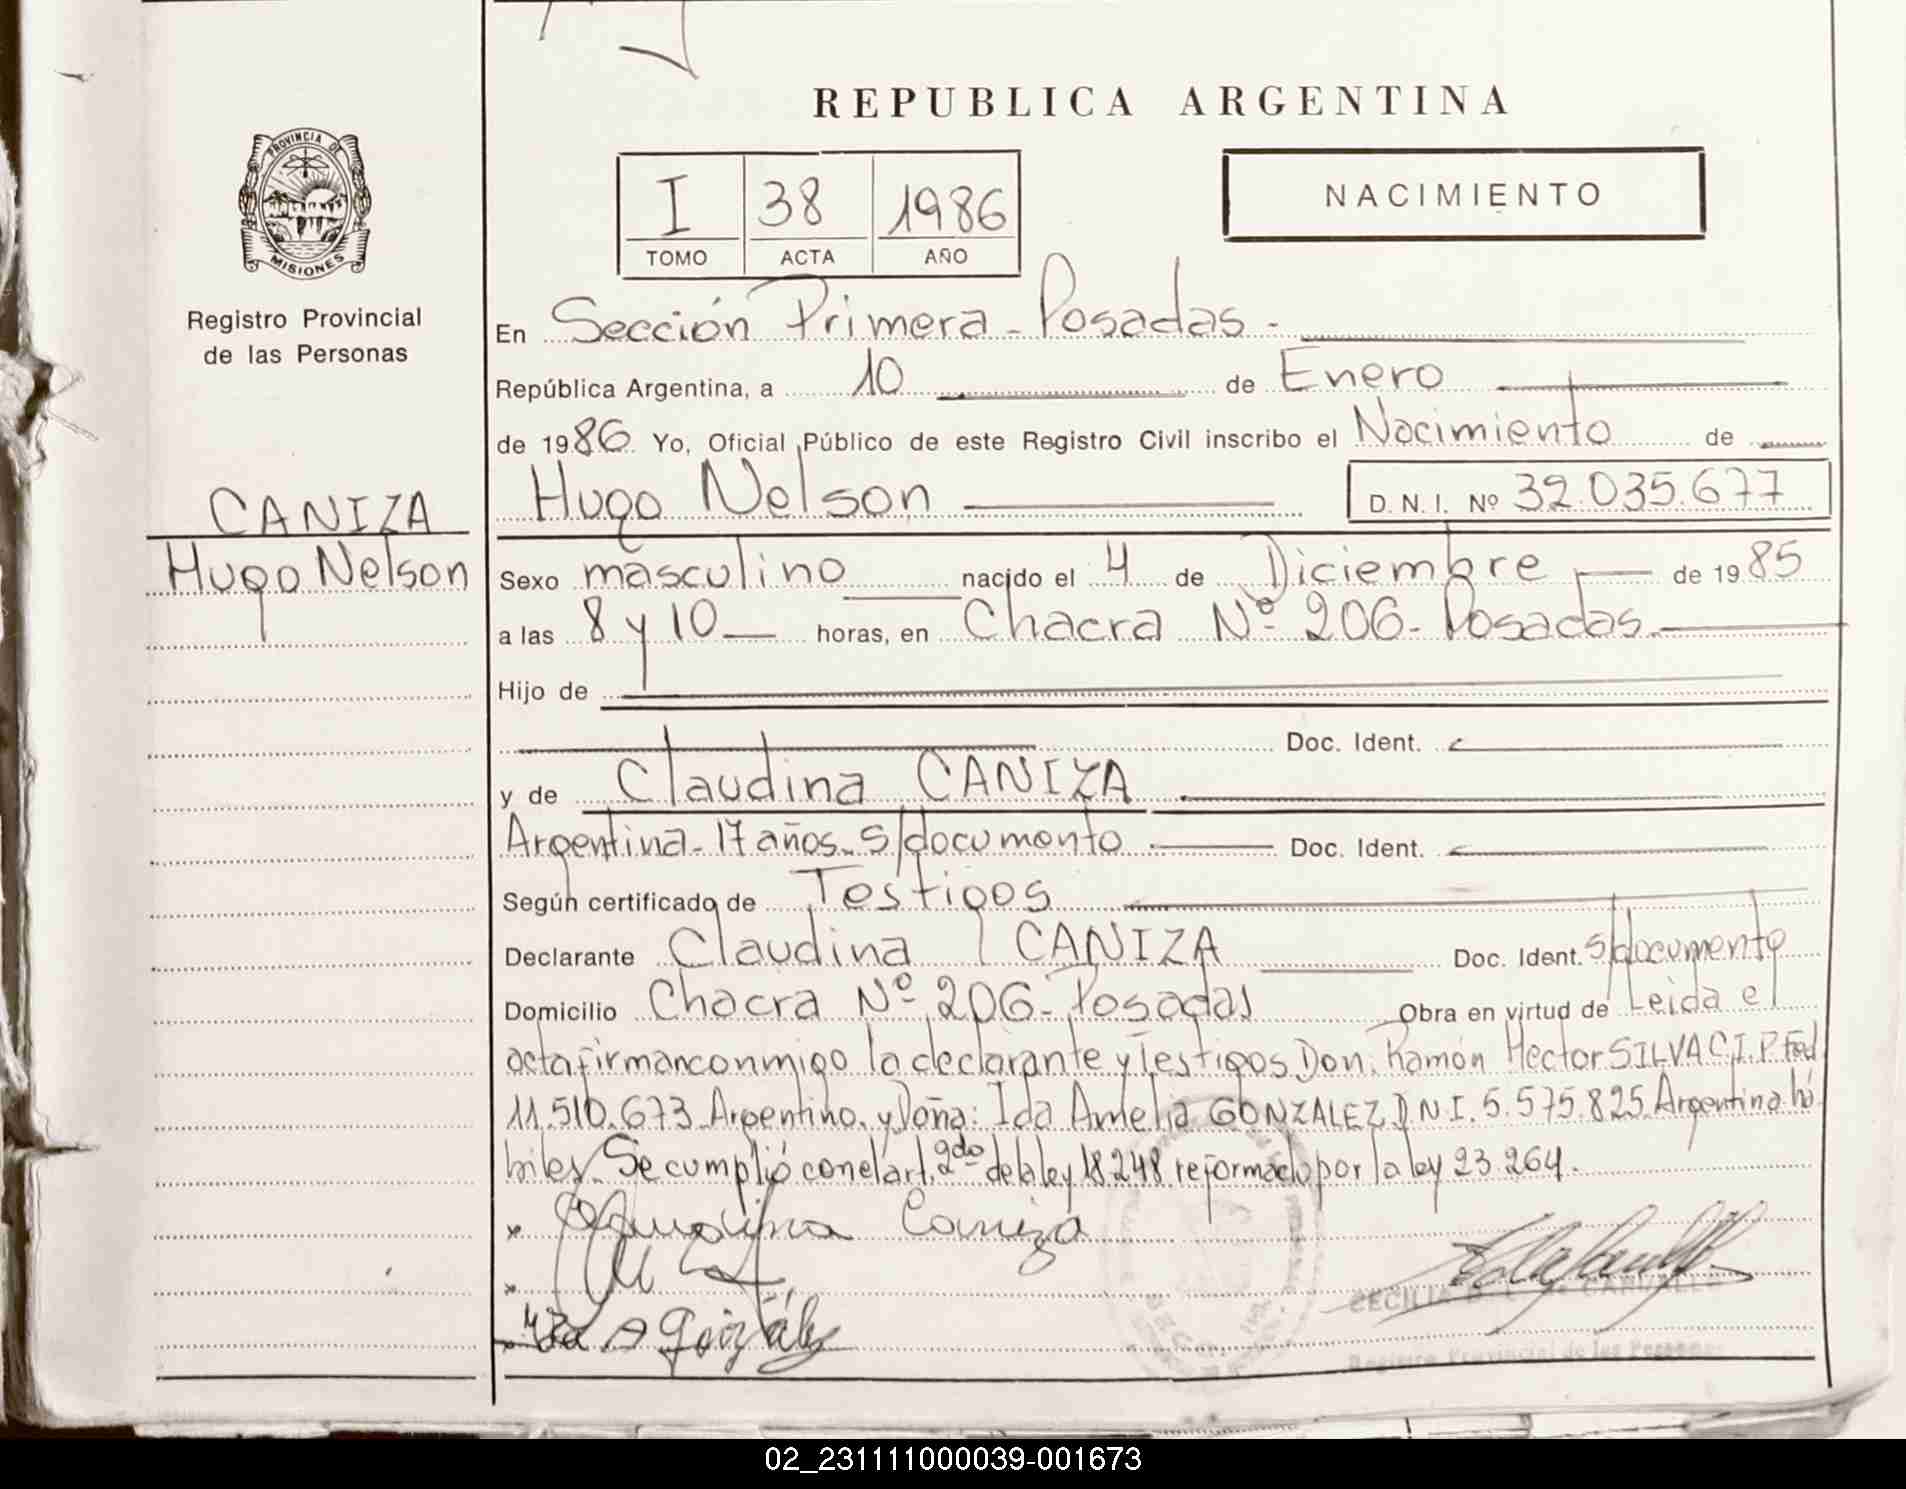 REPUBLICA ARGENTINA
PROVINCIA DE
MISIONES
Registro Provincial
de las Personas
I 38 1986
TOMO ACTA AÑO
NACIMIENTO
En Sección Primera - Posadas -
República Argentina, a 10 de Enero
de 1986 Yo, Oficial Público de este Registro Civil inscribo el Nacimiento de
CANIZA
Hugo Nelson
Hugo Nelson D. N. I. Nº 32.035.677
Sexo masculino nacido el 4 de Diciembre de 1985
a las 8 y 10 horas, en Chacra Nº 206 - Posadas.
Hijo de
Doc. Ident.
y de Claudina CANIZA
Argentina - 17 años - s/documento Doc. Ident.
Según certificado de Testigos
Declarante Claudina CANIZA Doc. Ident. s/documento
Domicilio Chacra Nº 206 - Posadas Obra en virtud de Leida el
acta firman conmigo la declarante y Testigos Don: Ramón Hector SILVA C.I.P. Fed
11.510.673 Argentino, y Doña: Ida Amelia GONZALEZ D.N.I. 5.575.825 Argentina há
biles. Se cumplió con el art. 2do de la ley 18.248 reformado por la ley 23.264.
Claudina Caniza
Ida A González
CECILIA
Registro Provincial de las Personas
02_231111000039-001673